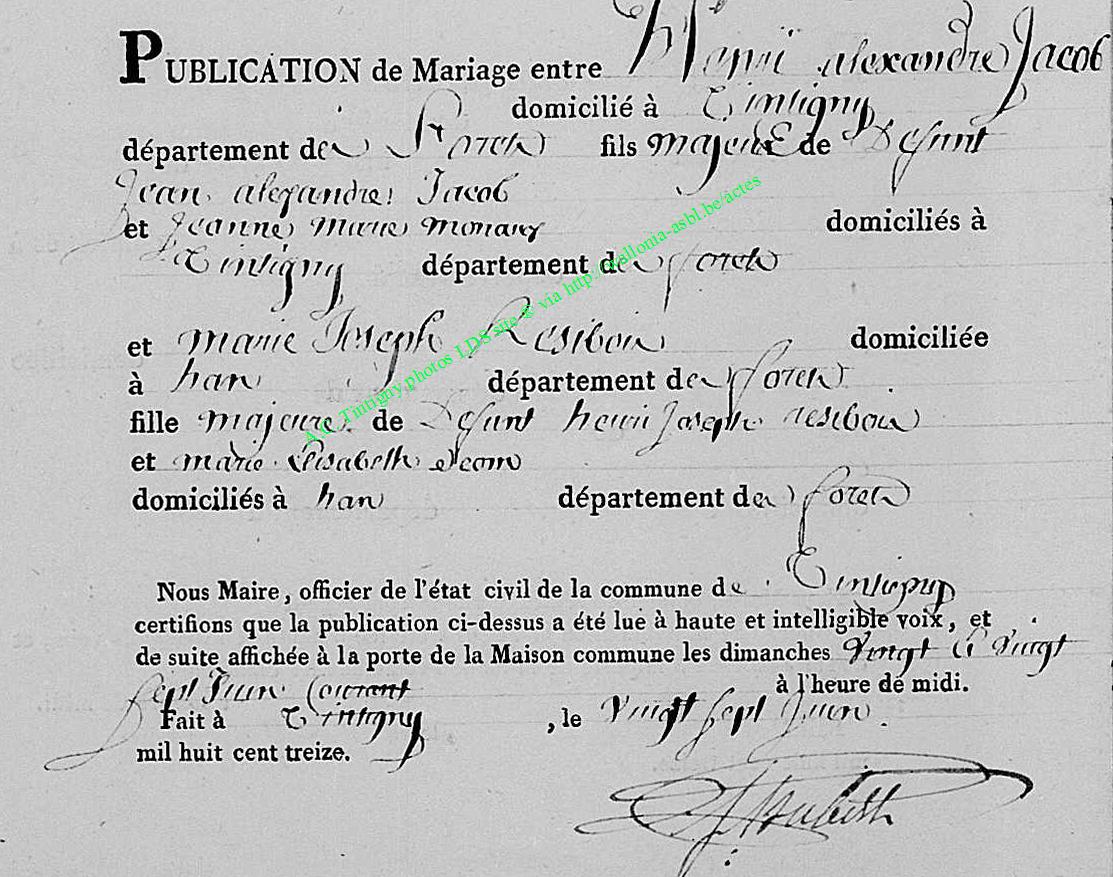 PUBLICATION de Mariage entre henri alexandre Jacob
domicilié à Tintigny
département des forets fils majeur de Defunt
Jean alexandre Jacob
et Jeanne marie
domiciliés à
Tintigny département des forets
et marie Joseph Resibois domiciliée
à han département des forets
fille majeure de Defunt henri Joseph resibois
et marie Elisabeth
domiciliés à han département des forets
Nous Maire, officier de l'état civil de la commune de Tintigny
certifions que la publication ci-dessus a été lue à haute et intelligible voix, et
de suite affichée à la porte de la Maison commune les dimanches vingt et vingt
sept Juin Courant à l'heure de midi.
Fait à Tintigny, le vingt sept Juin
mil huit cent treize.
A.C. Tintigny photos LDS site © via http://wallonia-asbl.be/actes